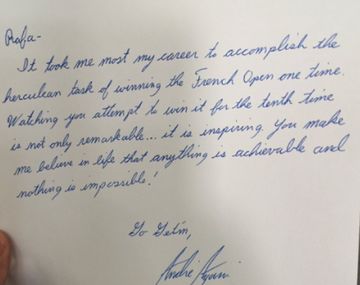 Rafa-
It took me most my career to accomplish the
herculean task of winning the French Open one time.
Watching you attempt to win it for the tenth time
is not only remarkable... it is inspiring. You make
me believe in life that anything is achievable and
nothing is impossible!
Go Get'm,
Andre Agassi